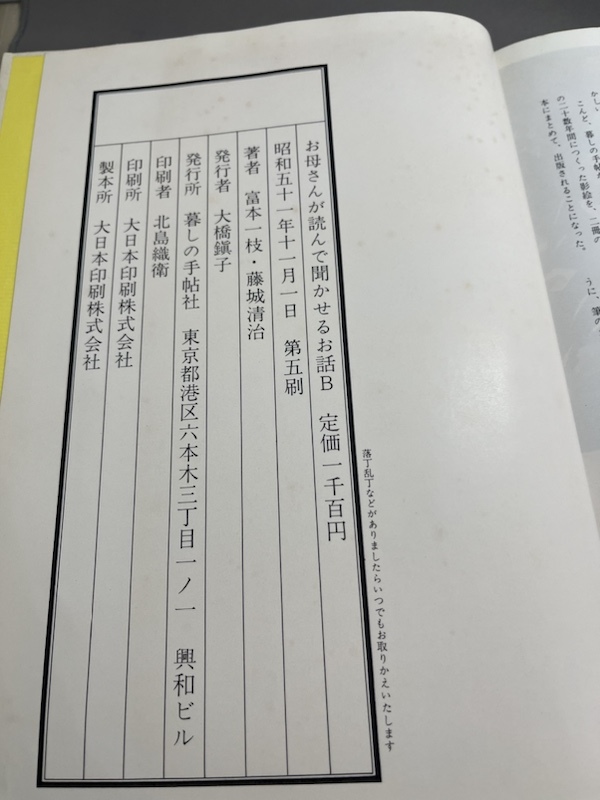 かしい
こんど、暮しの手帖
の二十数年間につくった影絵を、二冊の
本にまとめて、出版されることになった。
落丁乱丁などがありましたらいつでもお取りかえいたします
お母さんが読んで聞かせるお話B 定価一千百円
昭和五十一年十一月一日 第五刷
著者 富本一枝・藤城清治
発行者 大橋鎭子
発行所 暮しの手帖社 東京都港区六本木三丁目一ノ一 興和ビル
印刷者 北島織衛
印刷所 大日本印刷株式会社
製本所 大日本印刷株式会社